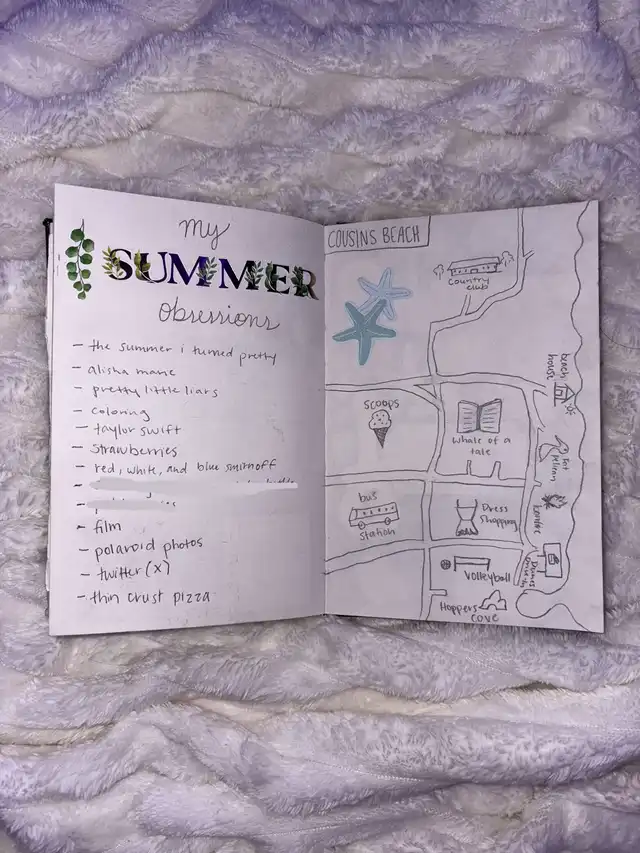 my
SUMMER
obsessions
- the summer i turned pretty
- alisha marie
- pretty little liars
- coloring
- taylor swift
- strawberries
- red, white, and blue smirnoff
- film
- polaroid photos
- twitter (x)
- thin crust pizza
COUSINS BEACH
country
club
beach
house
scoops
whale of a
tale
fat
pelican
bus
station
Dress
Shopping
bonfire
volleyball
Drive-in
Hoppers
cove